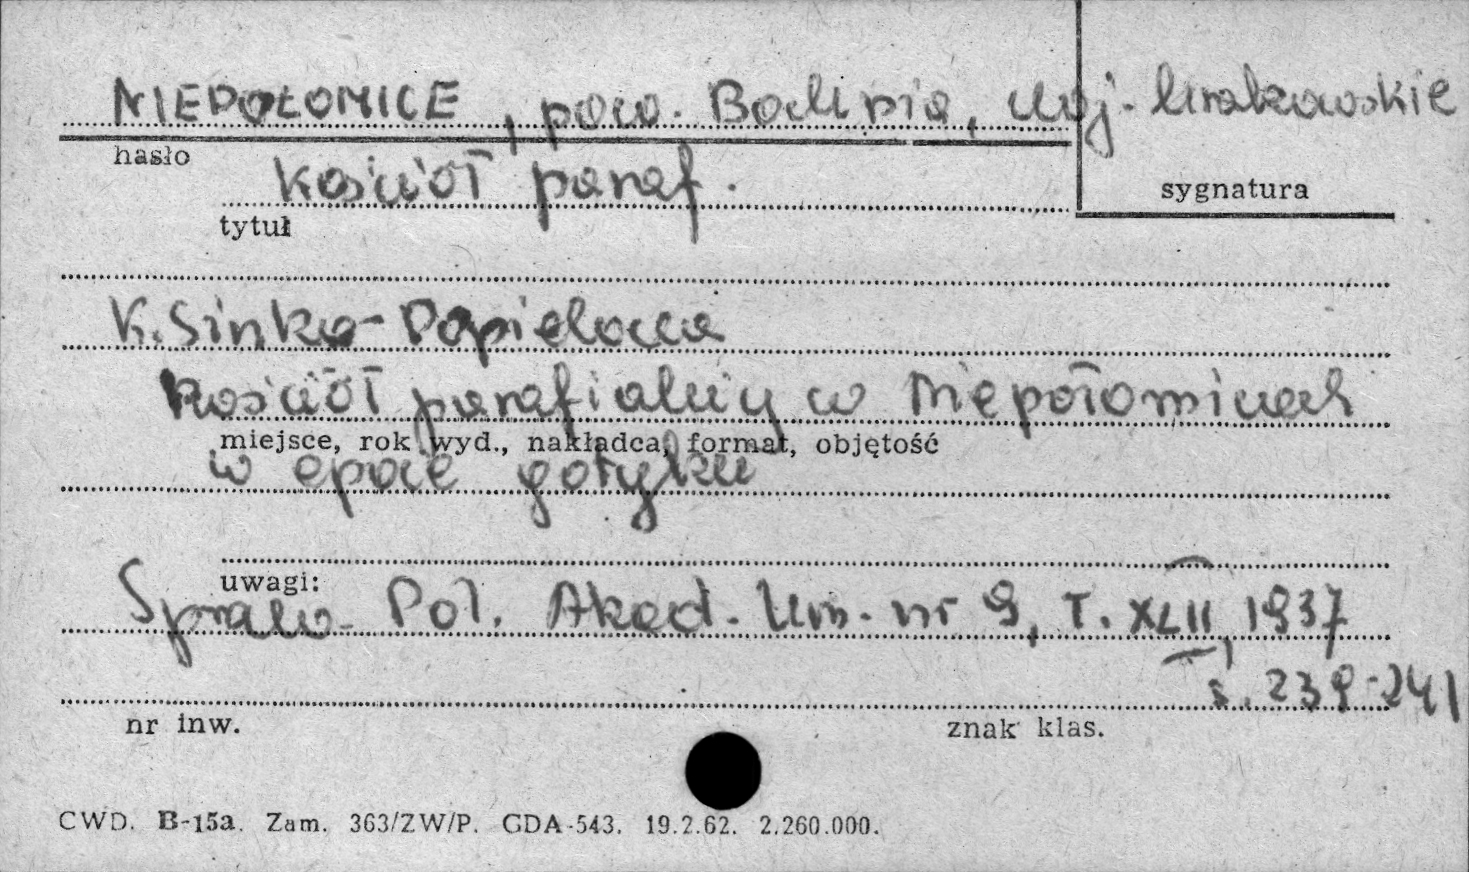 NIEPOŁOMICE, pow. Bochnia, woj. krakowskie
hasło
kościół paraf.
sygnatura
tytuł
K. Sinko-Popielowa
Kościół parafialny w Niepołomicach
miejsce, rok wyd., nakładca, format, objętość
w epoce gotyku
uwagi:
Spraw. Pol. Akad. Um. nr 9, T. XLII, 1937
s. 239-241
nr inw.
znak klas.
CWD. B-15a. Zam. 363/ZW/P. GDA-543. 19.2.62. 2.260.000.